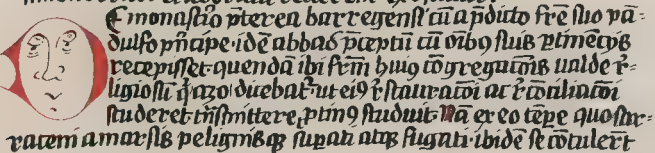 De monast̄io p̄terea barreẏens̄i cū a p̄dicto fr̄e suo pā-
dulfo p̄ncipe. idē abbas p̄ceptū cū oībꝯ suis ꝑtinēcÿs
recepisset. quendā ibi fr̄m huiꝯ cōgregac̄ōis ualde r̄e-
ligiosū q̄ azo dicebat᷑. ut eiꝯ r̄estauratōi ac r̄econciliatōi
studeret tn̄smittere, ꝑtinꝯ studuit. Nā ex eo tēpe quo sar-
raceni a marsis pelignisqꝫ suꝑati atqꝫ fugati. ibidē se cōtuler̄t